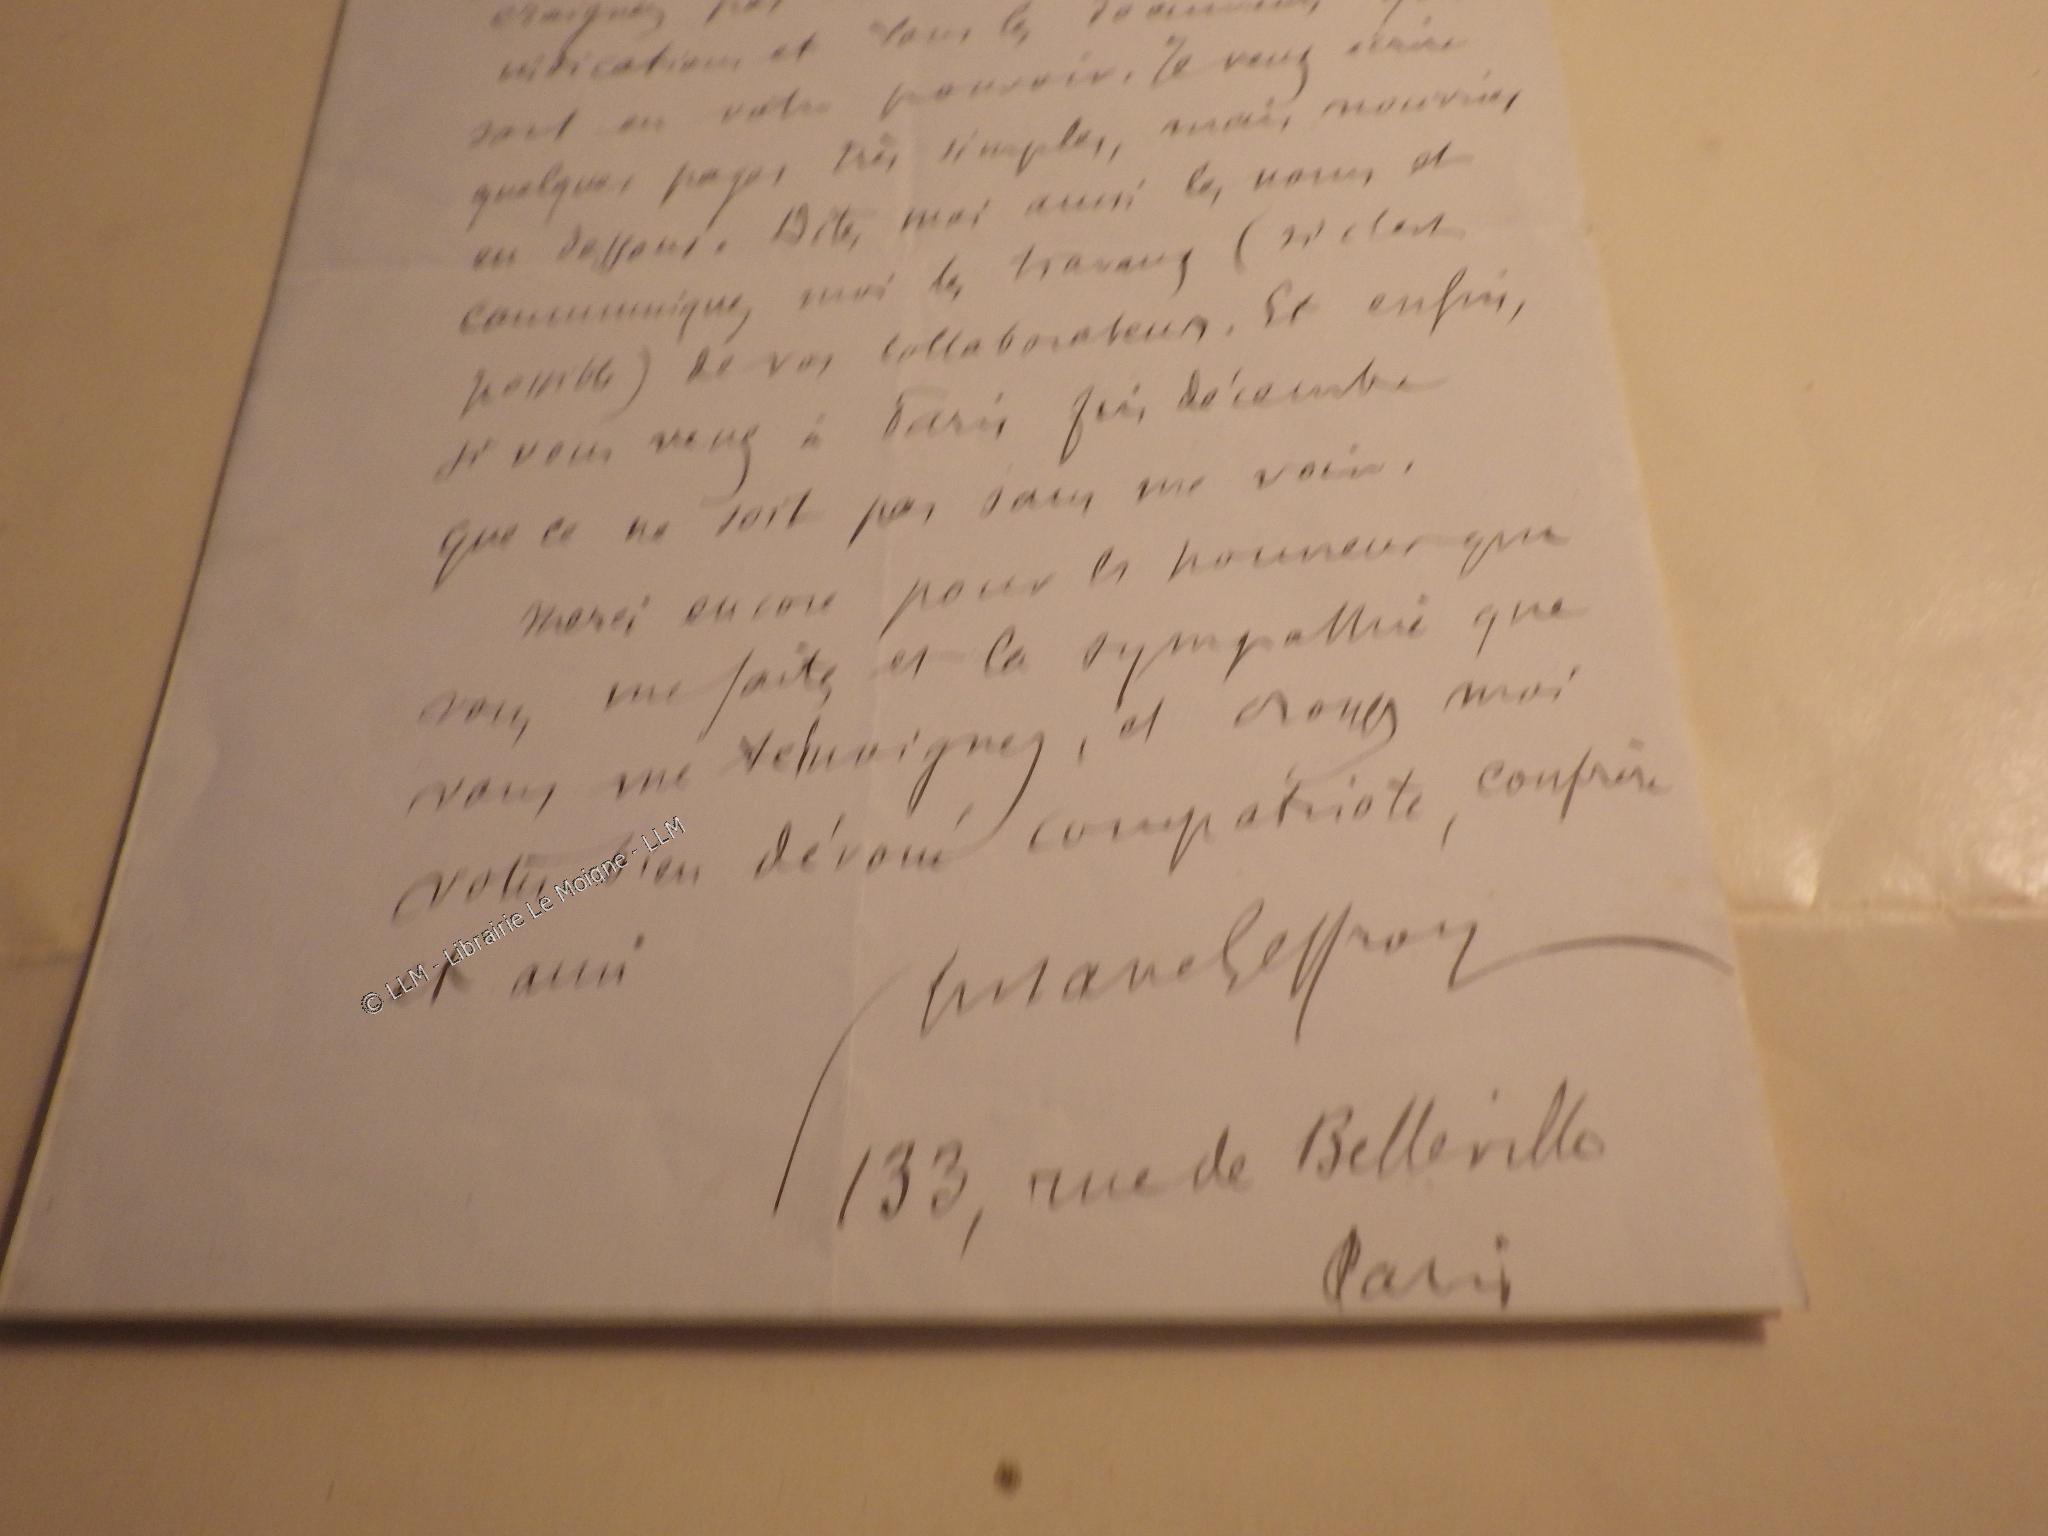 craignez pas
indications et tous les documents qui
sont en votre pouvoir. Je veux écrire
quelques pages très simples, mais nourries
en dessous. Dites moi aussi les noms et
communiquez moi les travaux (si c'est
possible) de vos collaborateurs. Et enfin,
si vous venez à Paris fin décembre
que ce ne soit pas sans me voir.
Merci encore pour l'honneur que
vous me faites et la sympathie que
vous me témoignez, et croyez moi
votre bien dévoué compatriote, confrère
et ami
Gustave Geffroy
133, rue de Belleville
Paris
© LLM - Librairie Le Moigne - LLM